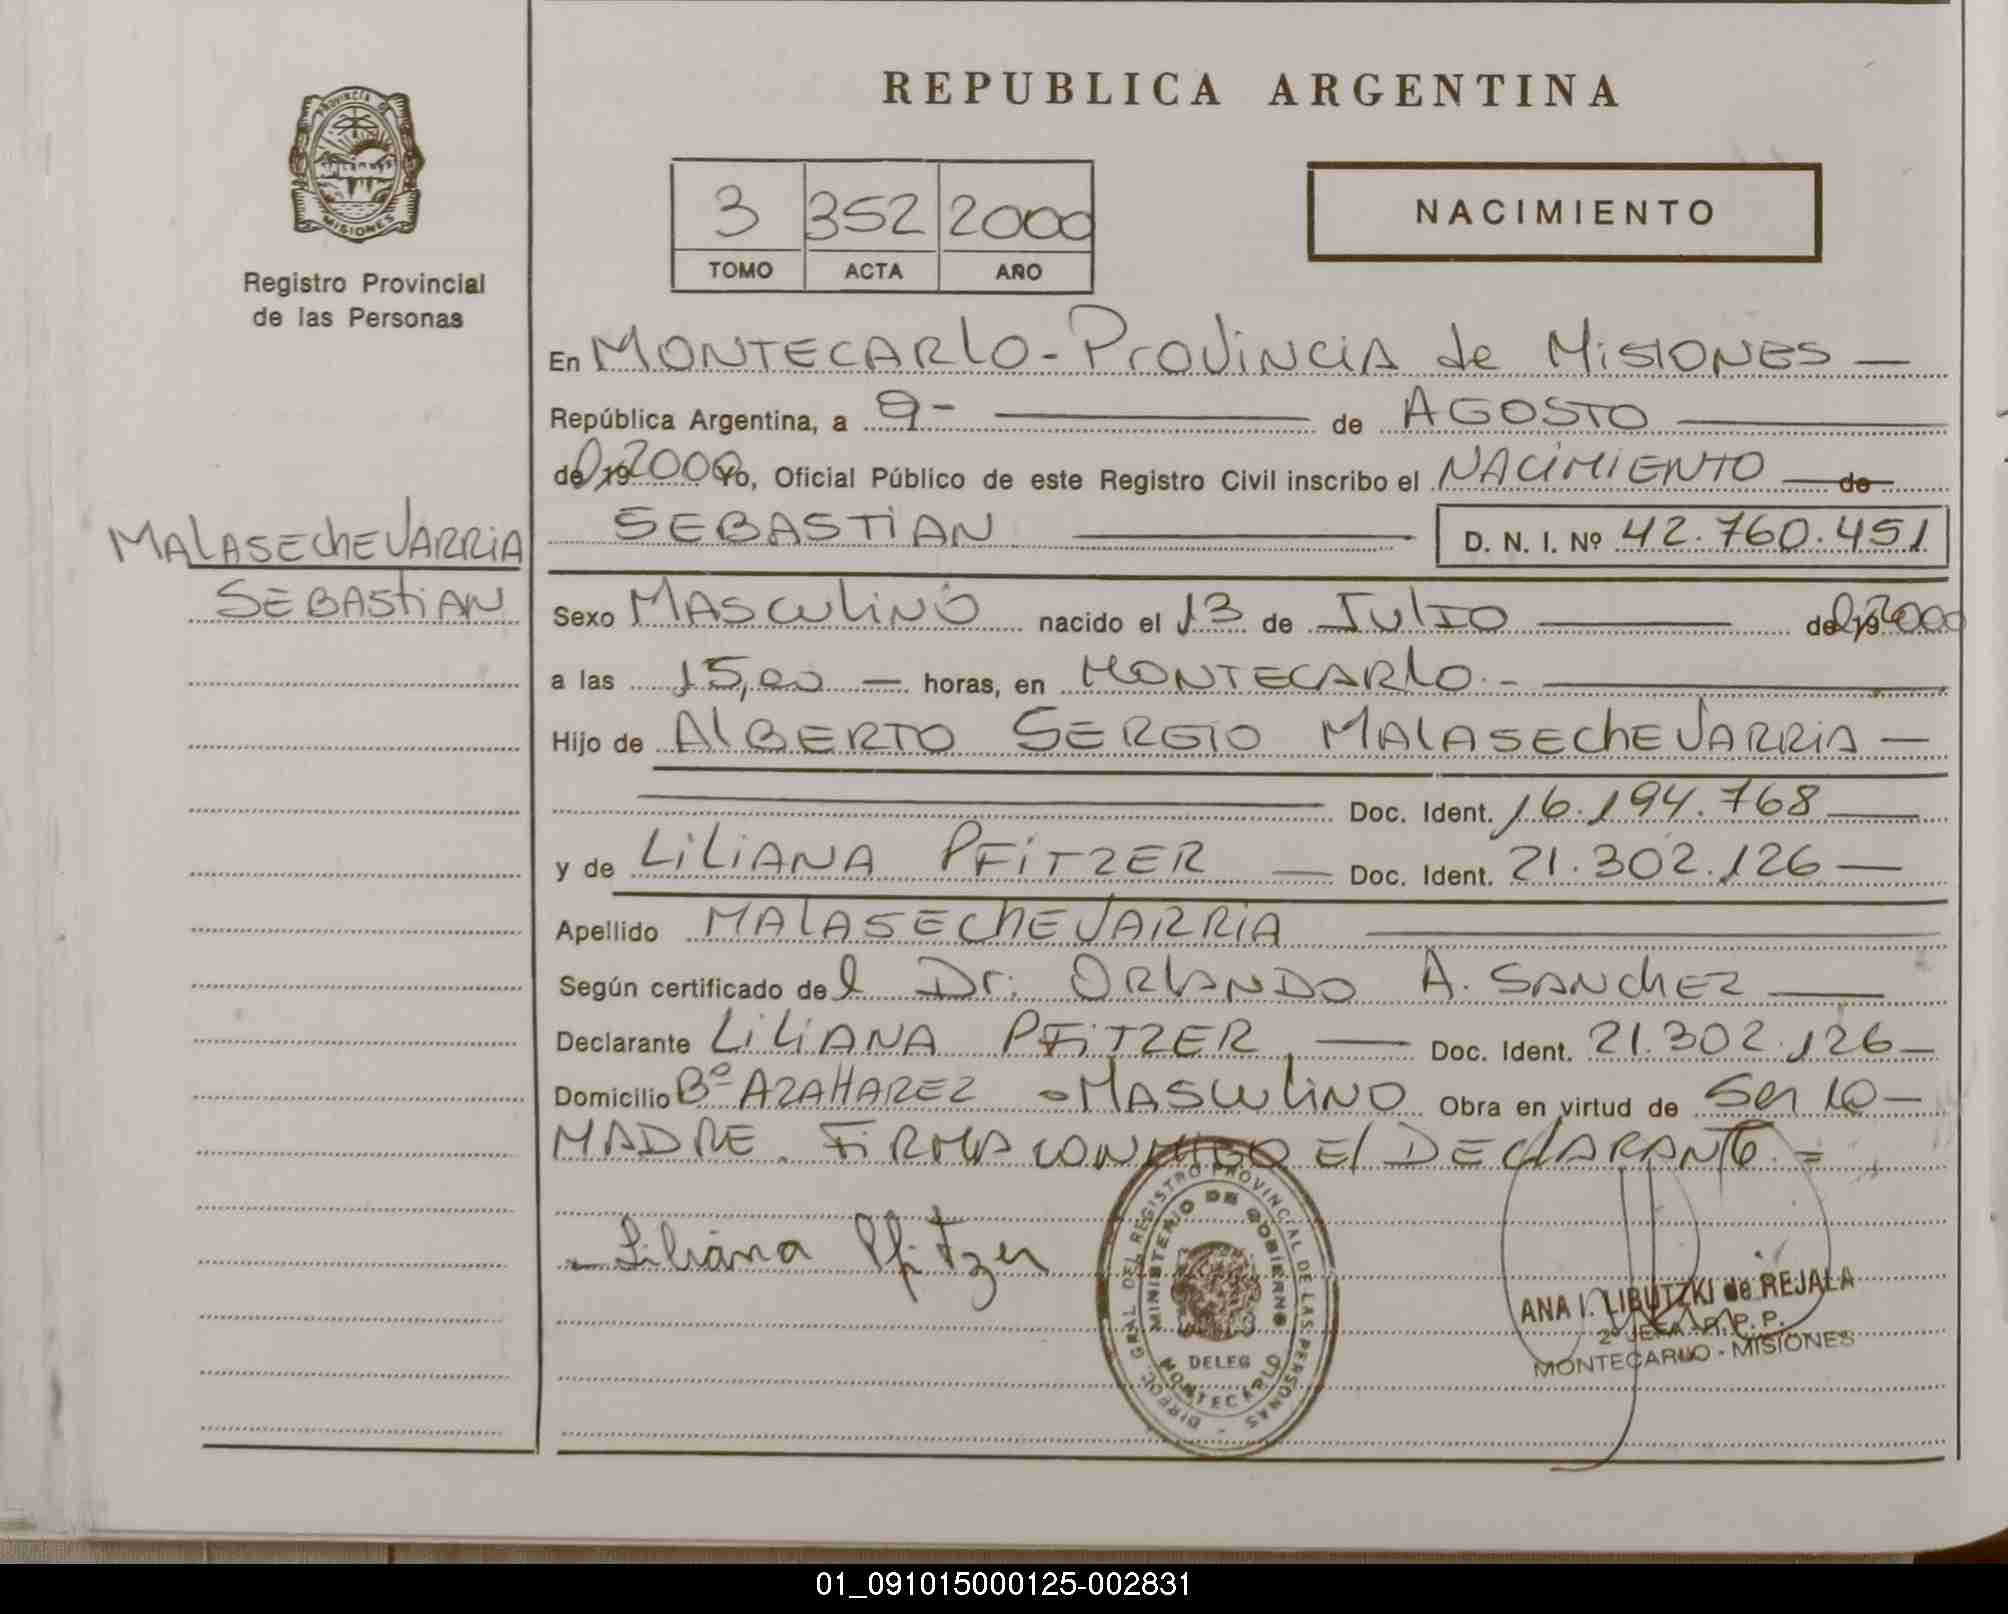 PROVINCIA DE
MISIONES
Registro Provincial
de las Personas
MALASECHEVARRIA
SEBASTIAN
REPUBLICA ARGENTINA
3 352 2000
TOMO ACTA AÑO
NACIMIENTO
En MONTECARLO - PROVINCIA de MISIONES —
República Argentina, a 9- — de AGOSTO —
del 19 2000 Yo, Oficial Público de este Registro Civil inscribo el NACIMIENTO — de
SEBASTIAN — D. N. I. Nº 42.760.451
Sexo MASCULINO nacido el 13 de JULIO — del 19 2000
a las 15,00 — horas, en MONTECARLO.- —
Hijo de ALBERTO SERGIO MALASECHEVARRIA —
— Doc. Ident. 16.194.768 —
y de LILIANA PFITZER — Doc. Ident. 21.302.126 —
Apellido MALASECHEVARRIA —
Según certificado del Dr. ORLANDO A. SANCHEZ —
Declarante LILIANA PFITZER — Doc. Ident. 21.302.126 —
Domicilio Bº AZAHAREZ - MASCULINO Obra en virtud de Ser la —
MADRE. FIRMA CONMIGO El DECLARANTE. =
Liliana Pfitzer
DIREC. GRAL DEL REGISTRO PROVINCIAL DE LAS PERSONAS
MINISTERIO DE GOBIERNO
DELEG
MONTECARLO
ANA I. LIBUTZKI de REJALA
2º JEFA R. P. P.
MONTECARLO - MISIONES
01_091015000125-002831